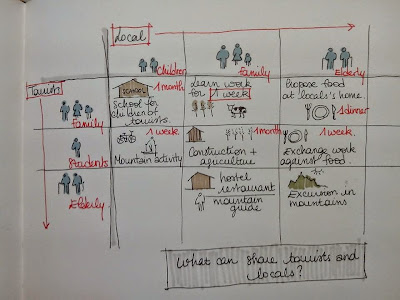 Local
Children
Family
Elderly
Tourist
1 month
SCHOOL
School for
children of
tourists.
Learn work
for 1 week
Propose food
at locals's home.
1 dinner
Family
1 week.
Mountain activity
1 month
Construction +
agriculture
1 week.
Exchange work
against food.
Students
Elderly
hostel
restaurant
mountain
guide
Excursion in
mountains
What can share tourists and
locals?